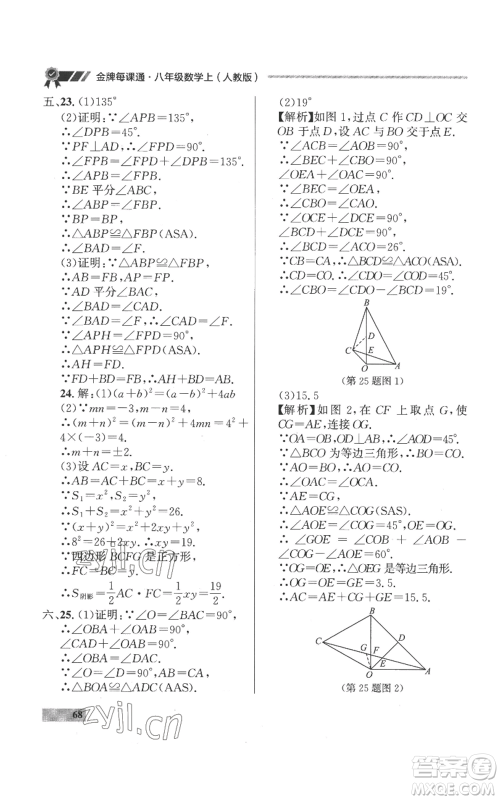 金牌每课通·八年级数学上(人教版)
五、23. (1)135°
(2)证明:∵∠APB=135°,
∴∠DPB=45°.
∵PF⊥AD,∴∠FPD=90°.
∴∠FPB=135°.
∴∠APB=∠FBP.
∵BE 平分∠ABC,
∴∠ABP=∠FBP.
∵BP=BP,
∴△ABP≌△FBP(ASA).
∴∠BAD=∠F.
(3)证明:∵△ABP≌△FBP,
∴AB=FB,AP=FP.
∵AD 平分∠BAC,
∴∠BAD=∠CAD.
∵∠BAD=∠F,∴∠CAD=∠F.
∴△APH≌△FPD(ASA).
∴AH=FD.
∵FD+BD=FB,∴AH+BD=AB.
24. 解:(1)(a+b)²=(a-b)²+4ab
(2)∵mn=-3,m-n=4,
∴(m+n)²=(m-n)²+4mn=4²+
4×(-3)=4.
∴m+n=±2.
(3)设 AC=x,BC=y,
∴AB=AC+BC=x+y=8.
∵S₁=x²,S₂=y²,
∴S₁+S₂=x²+y²=26.
∵(x+y)²=x²+y²+2xy,
∴8²=26+2xy.∴xy=19.
∵四边形 BCFG 是正方形,
∴FC=BC=y.
∴S阴影=1/2AC·FC=1/2xy=19/2.
六、25. (1)证明:∵∠O=∠O'=90°,
∴∠OBA+∠OAB=90°,
∠CAO'+∠OAB=90°.
∴∠OBA=∠CAO'.
(2)19°
【解析】如图 1,过点 C 作 CD⊥OC 交
OB 于点 D,设 AC 交 OB 于点 E.
∵∠ACB=∠AOB=90°,
∴∠BEC+∠CBO=90°,
∠OEA+∠OAC=90°.
∵∠BEC=∠OEA,
∴∠CBO=∠CAO.
∵∠OCE+∠DCE=90°,
∠BCD+∠DCE=90°,
∴∠OCE=∠BCD.
∵CB=CA,∴△BCD≌△ACO(ASA).
∴CD=CO.∴∠CDO=∠COD=45°.
∴∠CBO=∠CDO-∠BCD=19°.
B
D
C
E
O
A
(第 25 题图 1)
(3)15.5
【解析】如图 2,在 CF 上取点 G,使
CG=AE,连接 OG.
∵OA=OB,OB=OC,∴OA=OC.
∵△BCO 为等边三角形,
∴BO=CO=AO.
∴∠OCA=∠OAC.
∵CG=AE,
∴△AOE≌△COG(SAS).
∴OE=OG,∠AOE=∠COG.
∴∠GOE=∠COF=60°.
∵OG=OE,∴△OEG 是等边三角形.
∴GE=OE=9.5.
∴CE=CG+GE=15.5.
B
C
D
F
G
E
O
A
(第 25 题图 2)
68
zyjl.cn
zyjl.cn